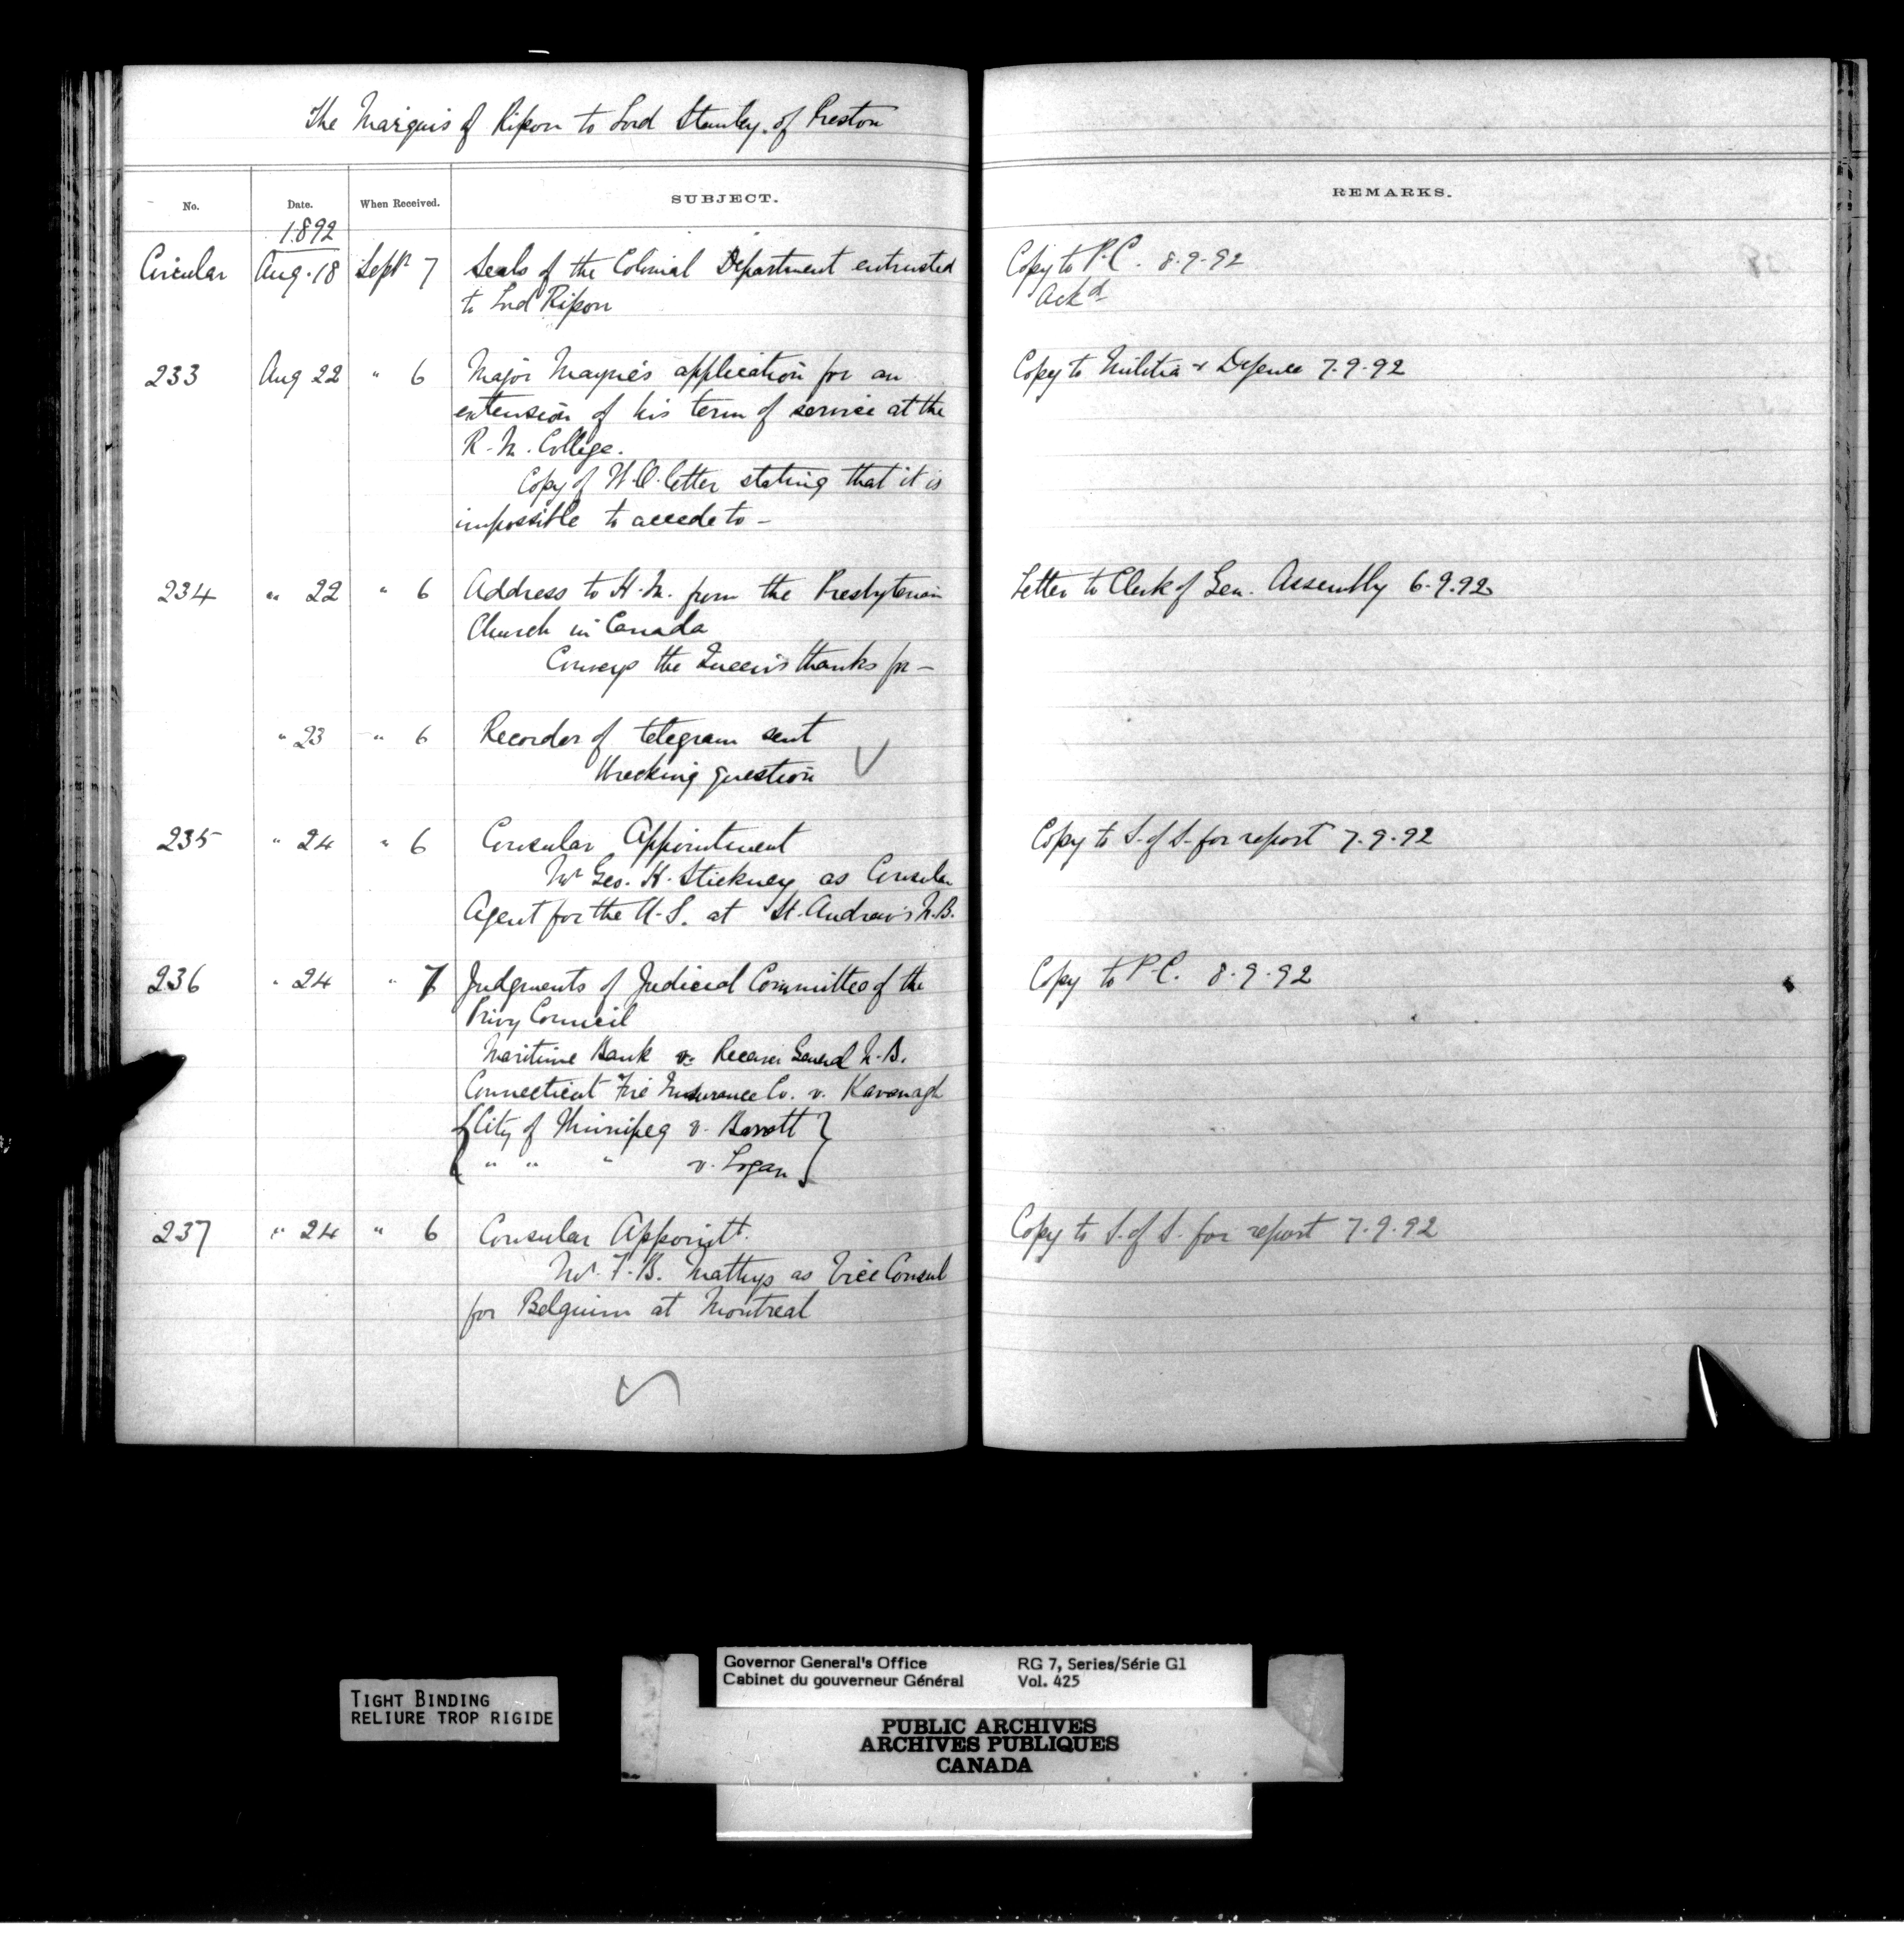 The Marquis of Ripon to Lord Stanley of Preston
No. Date. When Received. SUBJECT. REMARKS.
1892
Circular Aug. 18 Septr 7 Seals of the Colonial Department entrusted Copy to P.C. 8.9.92
to Lord Ripon Ackd
233 Aug 22 " 6 Major Mayne's application for an Copy to Militia & Defence 7.9.92
extension of his term of service at the
R.M. College.
Copy of W.O. letter stating that it is
impossible to accede to -
234 " 22 " 6 Address to H.M. from the Presbyterian Letter to Clerk of Gen. Assembly 6.9.92
Church in Canada
Conveys the Queen's thanks for -
" 23 " 6 Recorder of telegram sent
Wrecking question
235 " 24 " 6 Consular Appointment Copy to S. of S. for report 7.9.92
Mr Geo. H. Stickney as Consular
Agent for the U.S. at St. Andrew's N.B.
236 " 24 " 7 Judgments of Judicial Committee of the Copy to P.C. 8.9.92
Privy Council
Maritime Bank v. Receiver General N.B.
Connecticut Fire Insurance Co. v. Kavanagh
{City of Winnipeg v. Barrett}
{" " " v. Logan}
237 " 24 " 6 Consular Appointt. Copy to S. of S. for report 7.9.92
Mr. F.B. Mathys as Vice Consul
for Belgium at Montreal
TIGHT BINDING
RELIURE TROP RIGIDE
Governor General's Office RG 7, Series/Série G1
Cabinet du gouverneur Général Vol. 425
PUBLIC ARCHIVES
ARCHIVES PUBLIQUES
CANADA